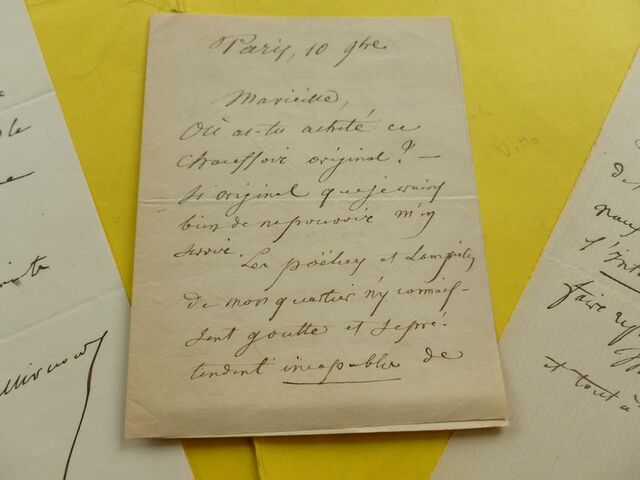 Paris, 10 9bre
Ma vieille,
Où as-tu acheté ce
chauffoir original? —
si original que je crains
bien de ne pouvoir m'en
servir.
Les poëliers et Lampistes
de mon quartier n'y connais-
sent goutte et se pré-
tendent incapables de
Vitto
de
l'Int
faire
et tout à